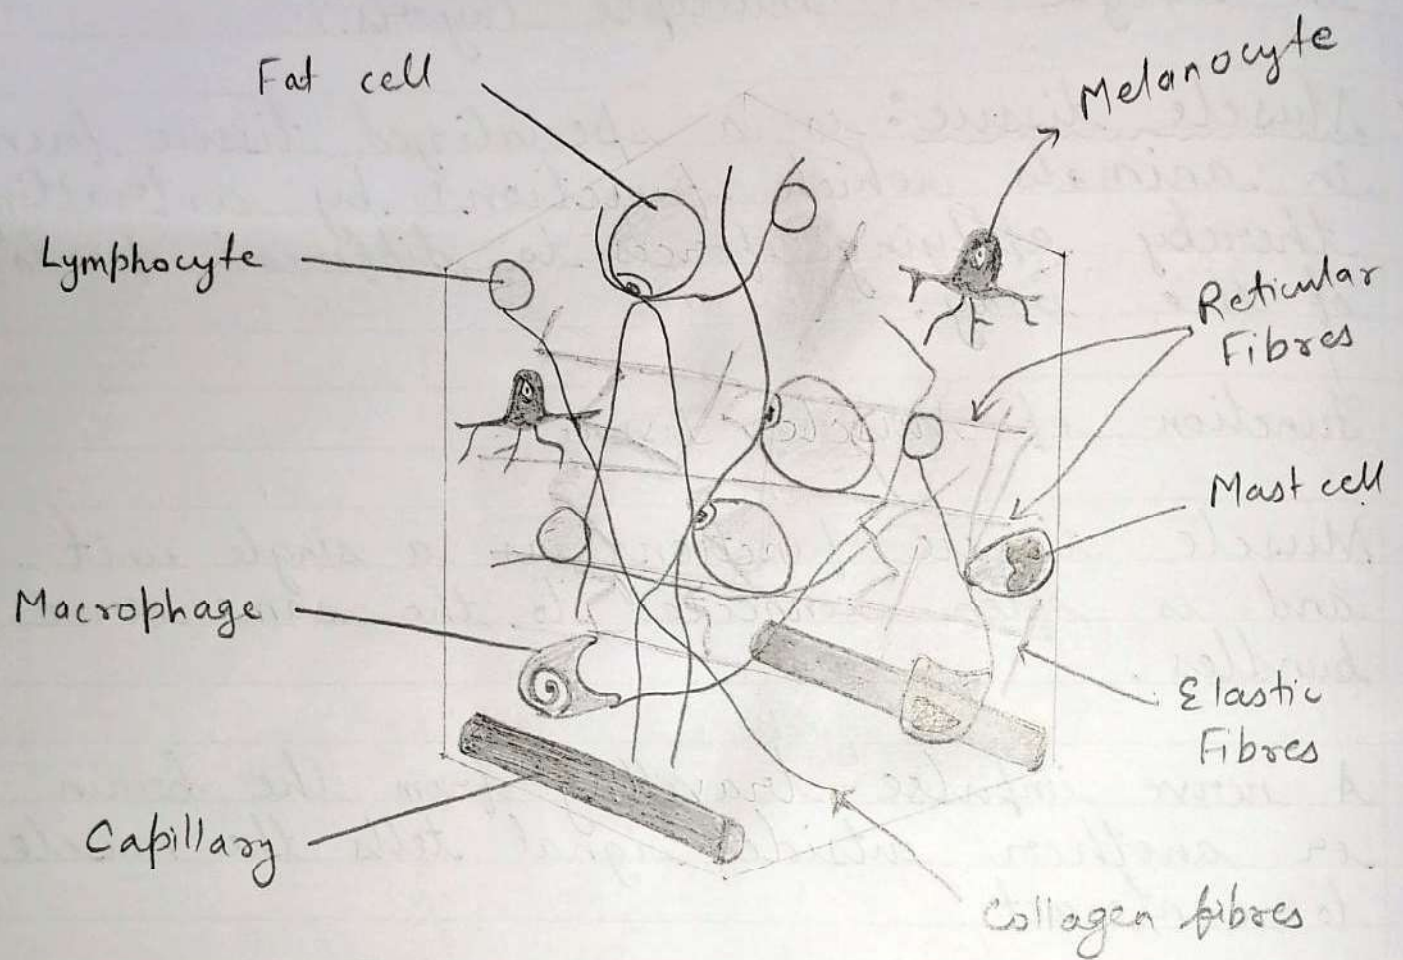 Fat cell
Melanocyte
Lymphocyte
Reticular
Fibres
Mast cell
Macrophage
Elastic
Fibres
Capillary
Collagen fibres